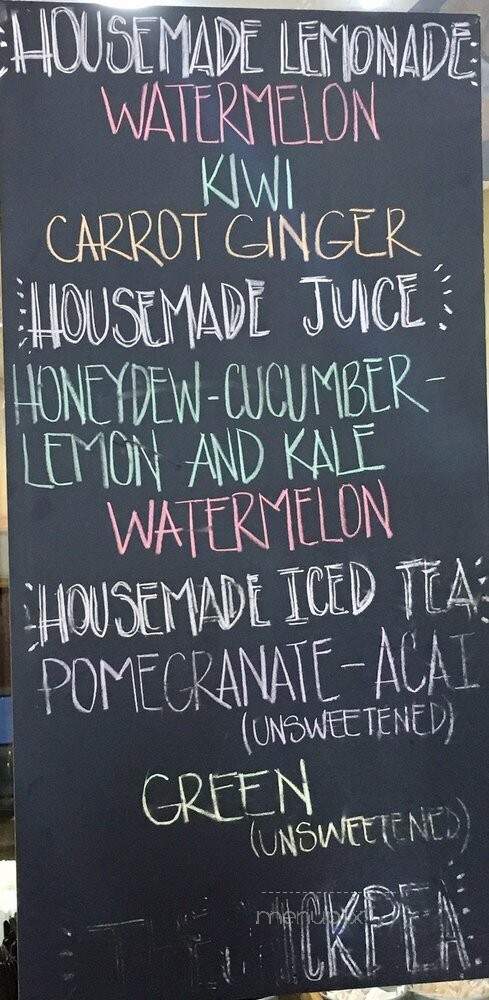 HOUSEMADE LEMONADE
WATERMELON
KIWI
CARROT GINGER
HOUSEMADE JUICE
HONEYDEW-CUCUMBER-
LEMON AND KALE
WATERMELON
HOUSEMADE ICED TEA
POMEGRANATE-ACAI
(UNSWEETENED)
GREEN
(UNSWEETENED)
THE